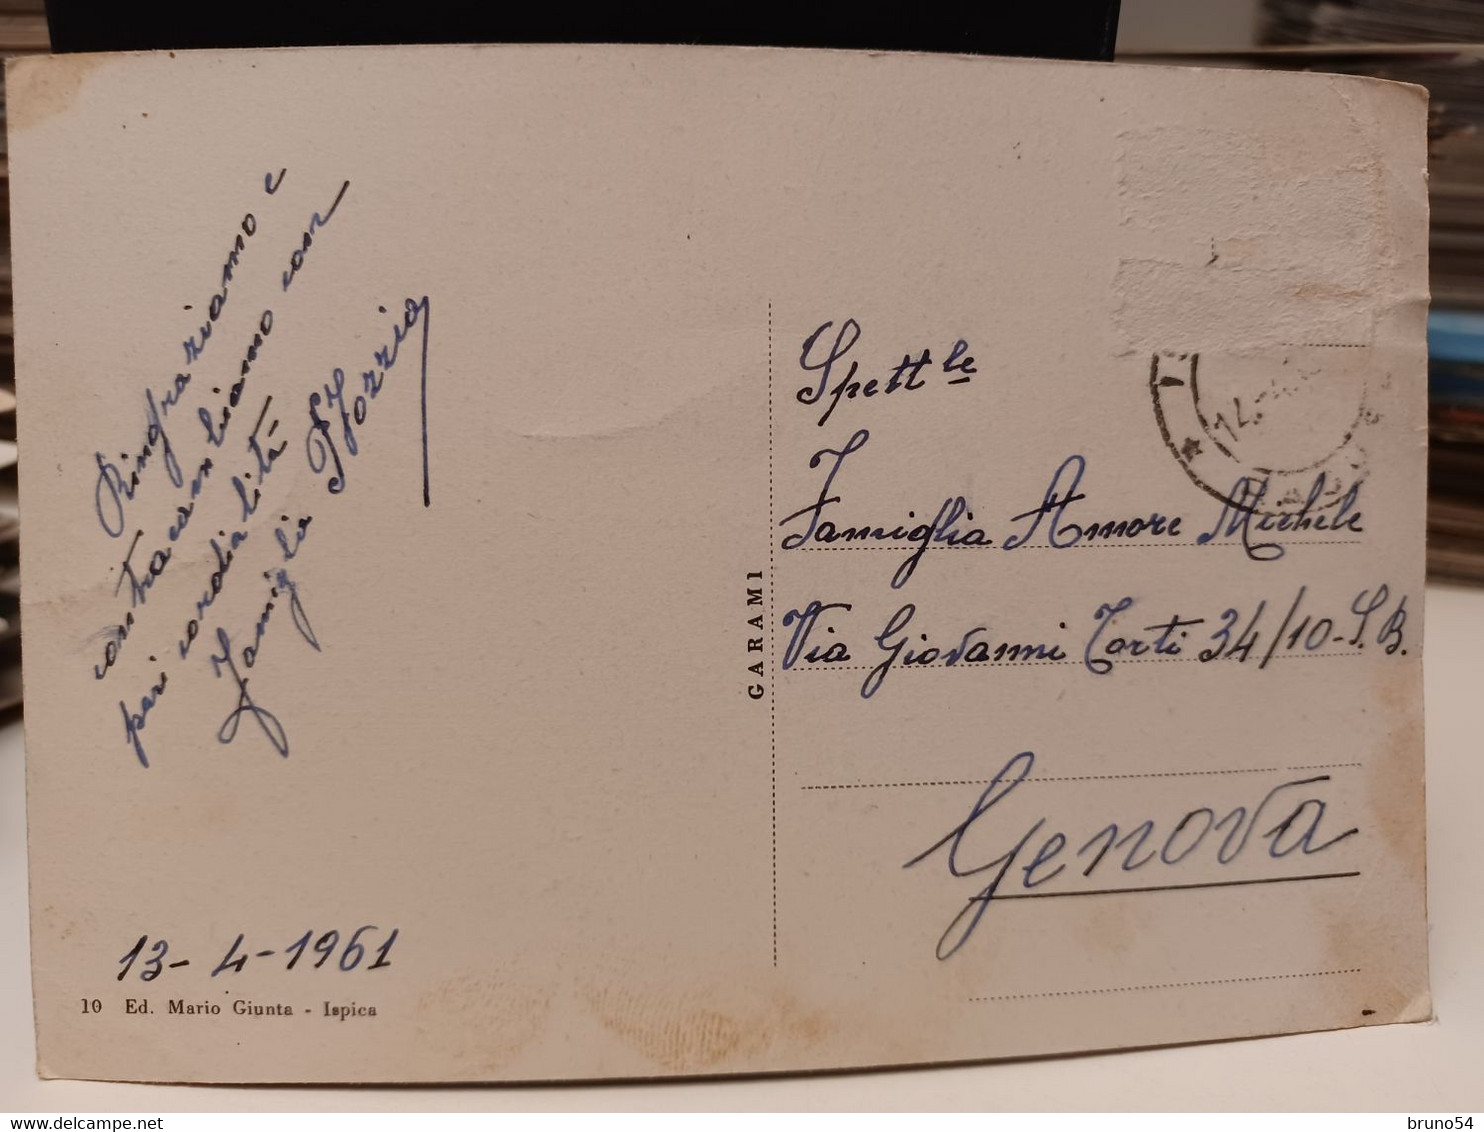 Ringraziamo e
contracambiamo con
pari cordialità
Famiglia Iozzia
13-4-1961
10 Ed. Mario Giunta - Ispica
GARAMI
Spett.le
Famiglia Amore Michele
Via Giovanni Torti 34/10-S.B.
Genova
bruno54